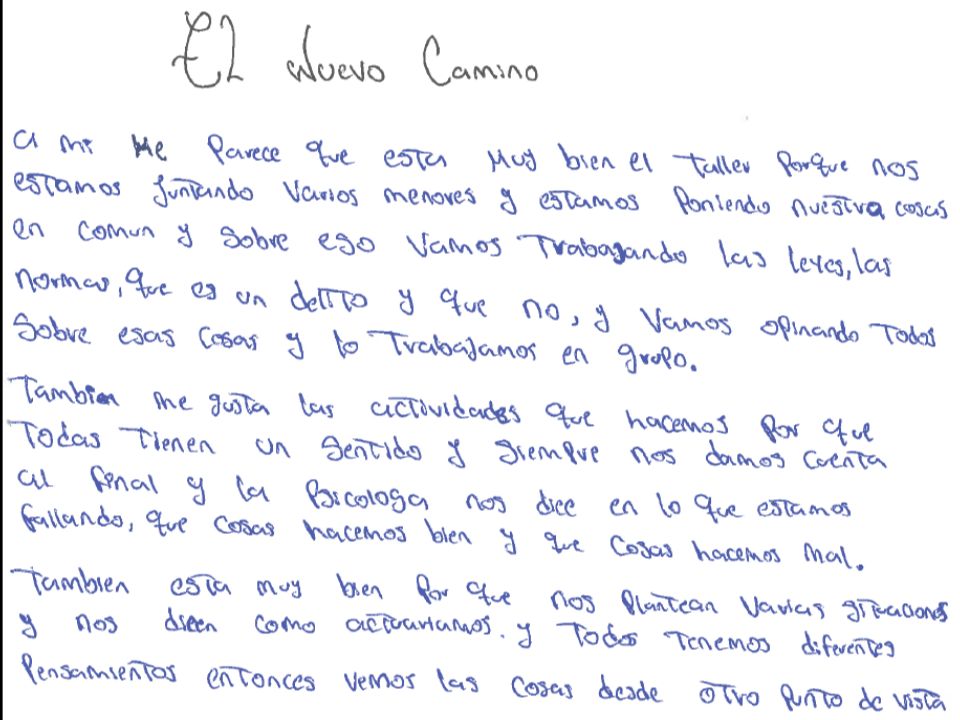 El Nuevo Camino
a mi Me Parece que esta Muy bien el taller Porque nos
estamos juntando varios menores y estamos Poniendo nuestra cosas
en comun y sobre eso vamos Trabajando las leyes, las
normas, que es un delito y que no, y vamos opinando Todos
Sobre esas cosas y lo Trabajamos en grupo.
Tambien me gusta las actividades que hacemos Por que
Todas Tienen un sentido y siempre nos damos cuenta
al final y la Psicologa nos dice en lo que estamos
fallando, que cosas hacemos bien y que cosas hacemos mal.
Tambien esta muy bien Por que nos Plantean varias situaciones
y nos dicen como actuariamos. y Todos Tenemos diferentes
Pensamientos entonces vemos las cosas desde otro punto de vista